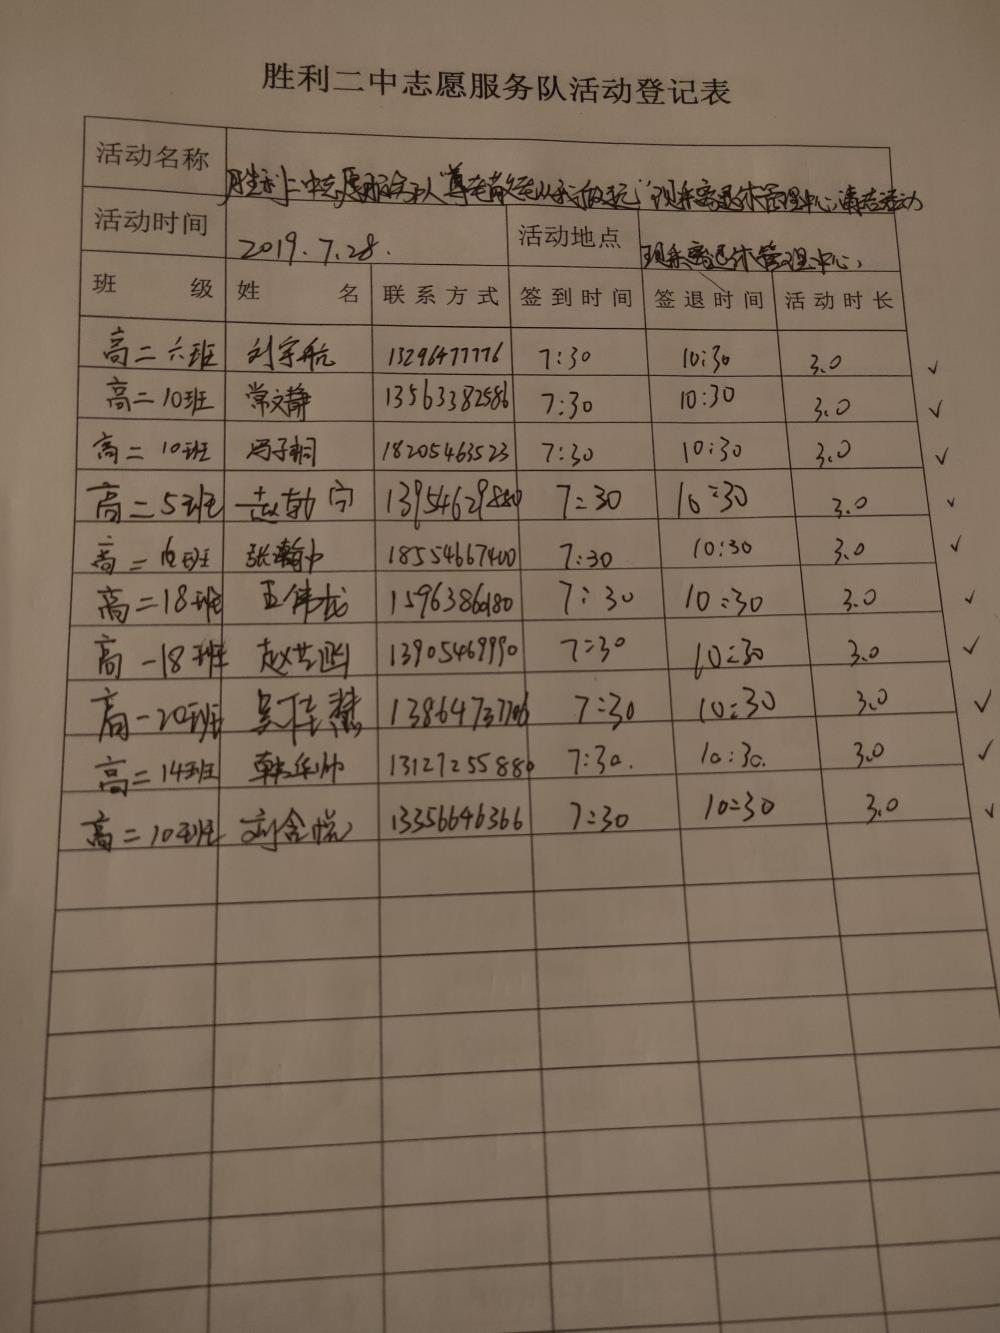 胜利二中志愿服务队活动登记表
活动名称 胜利二中志愿服务队"尊老敬老从我做起"现河离退休管理中心清洁活动
活动时间 2019.7.28. 活动地点 现河离退休管理中心
班级 姓名 联系方式 签到时间 签退时间 活动时长
高二六班 刘宇航 13296477776 7:30 10:30 3.0 ✓
高二10班 常文静 13563382586 7:30 10:30 3.0 ✓
高二10班 冯子桐 18205463523 7:30 10:30 3.0 ✓
高二5班 赵勃宇 7:30 10:30 3.0 ✓
高二 张瀚中 18554667400 7:30 10:30 3.0 ✓
高二18班 王伟龙 7:30 10:30 3.0 ✓
高一18班 赵 13905469990 7:30 10:30 3.0 ✓
高一20班 吴佳慧 7:30 10:30 3.0 ✓
高二14班 韩华帅 13127255880 7:30. 10:30. 3.0 ✓
高二10班 刘含悦 13356646366 7:30 10:30 3.0 ✓